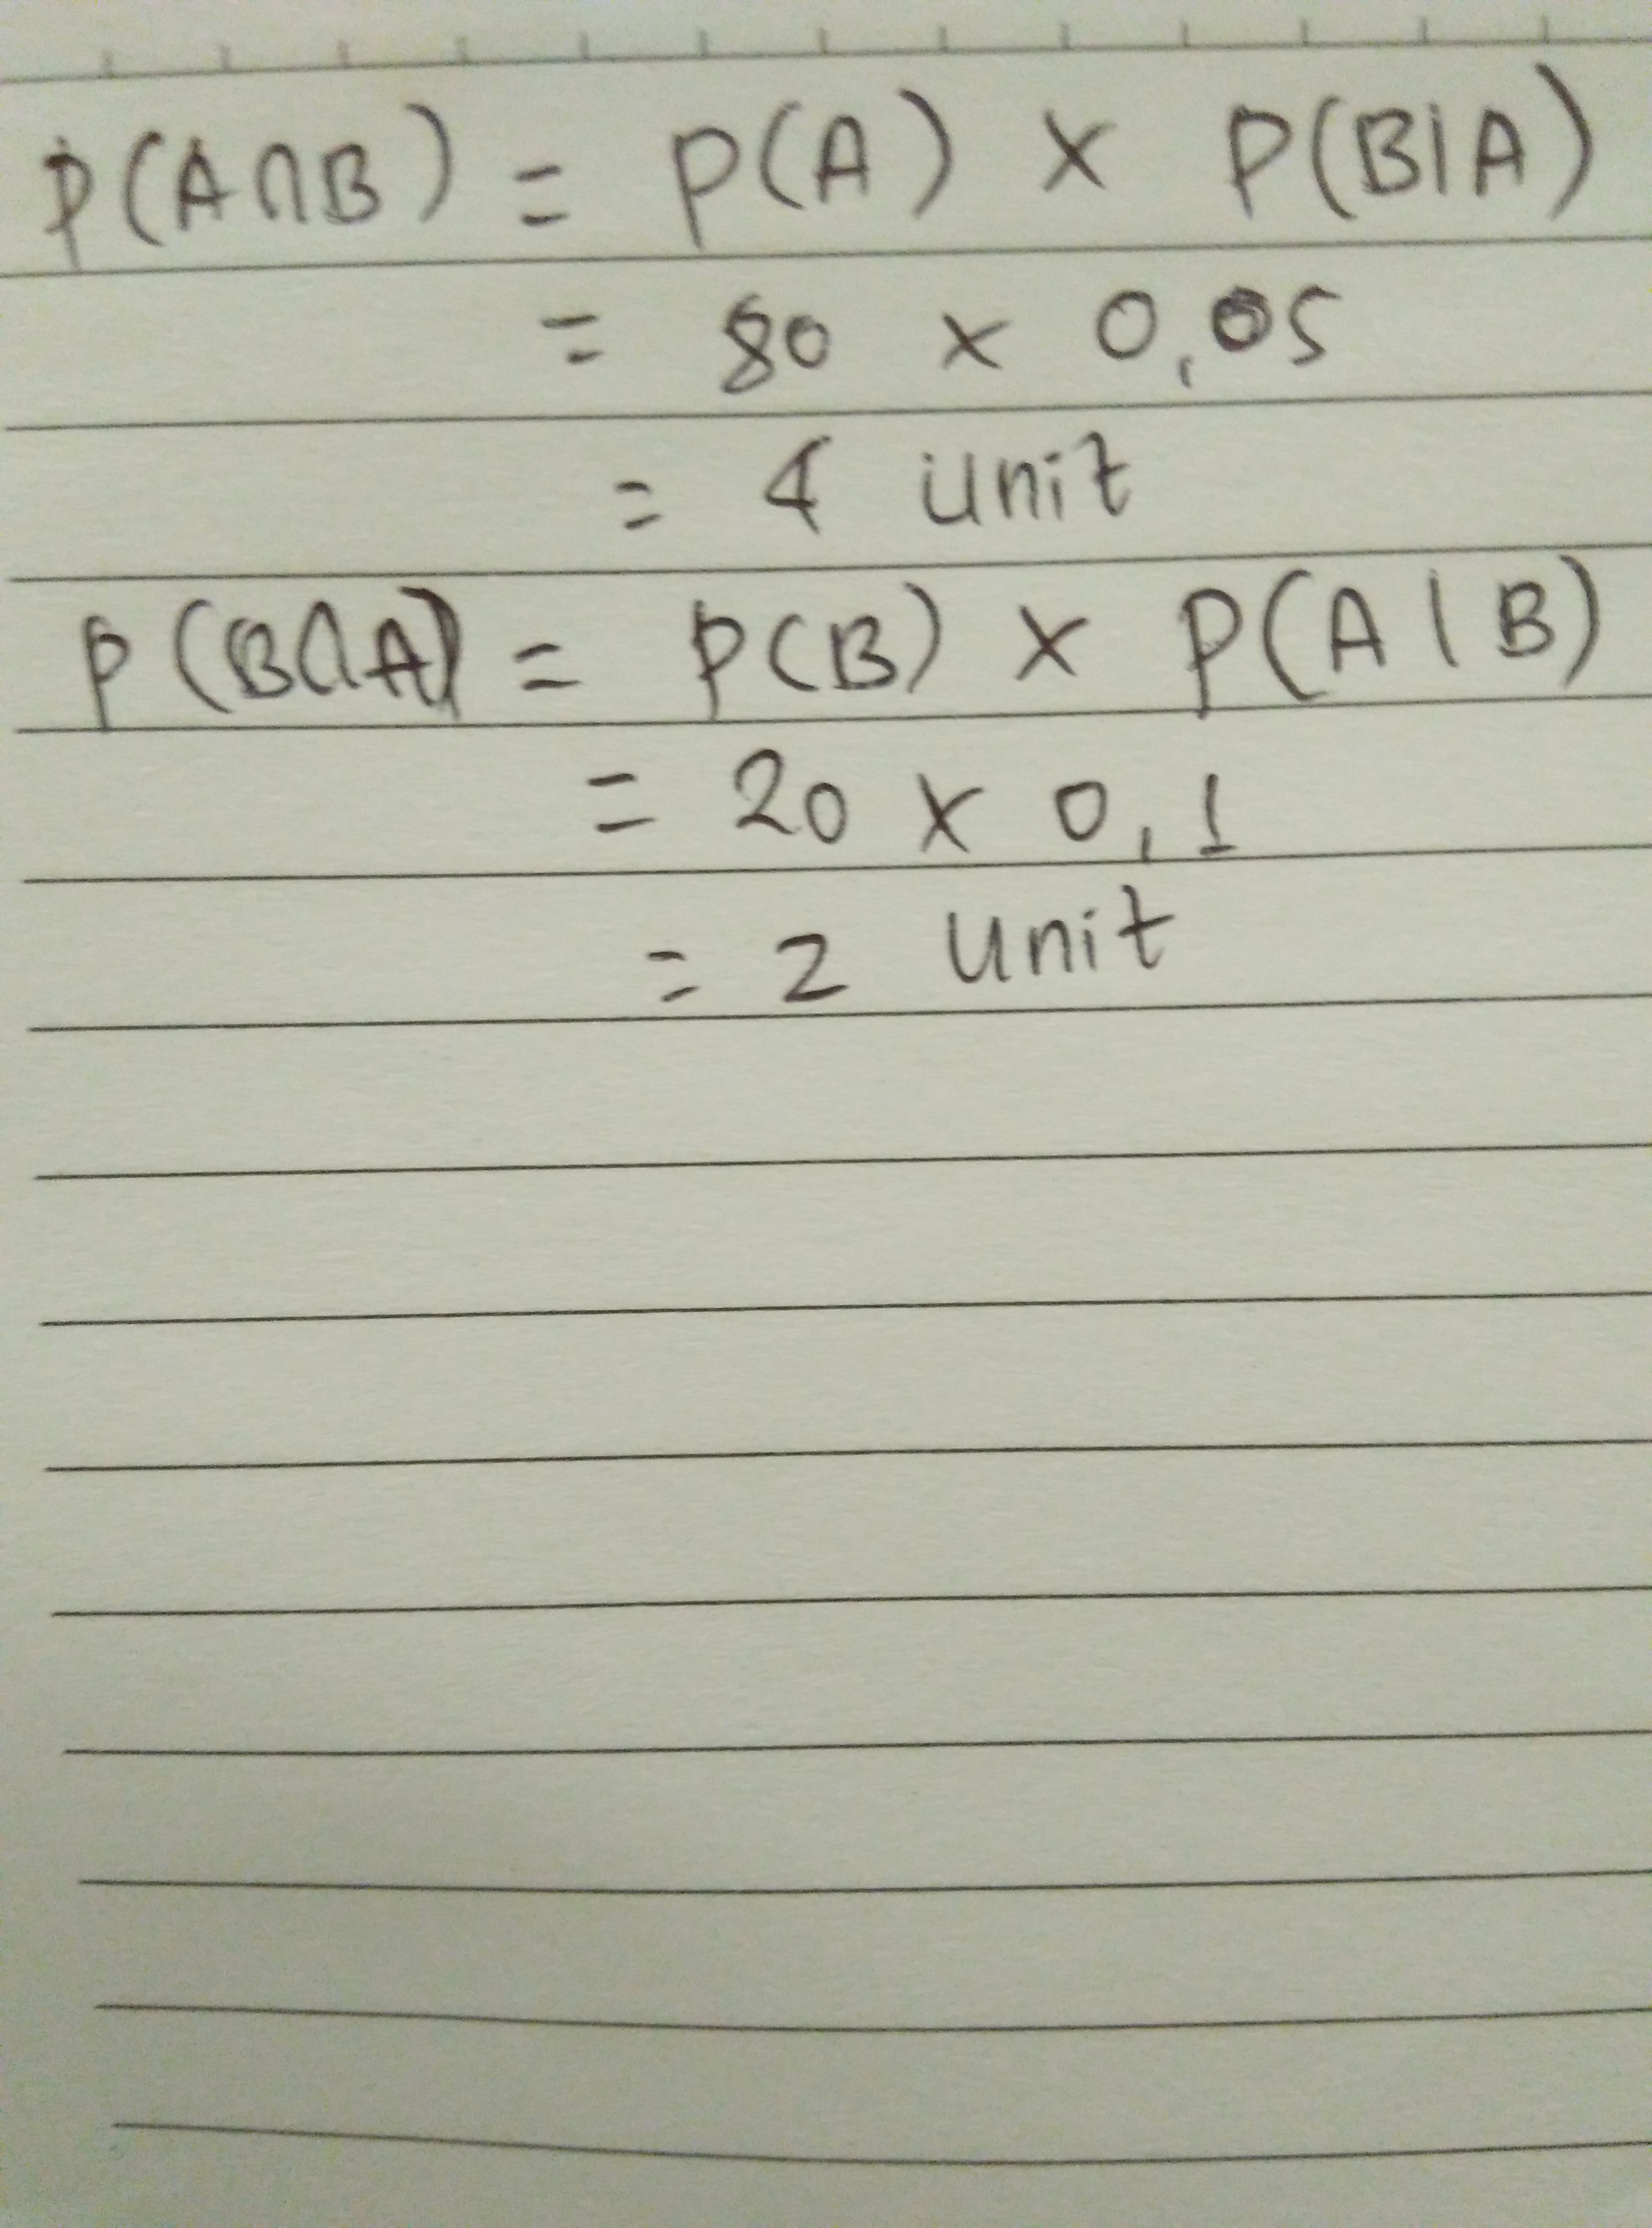 P(A∩B) = P(A) × P(B|A)
= 80 × 0,05
= 4 unit
P(B∩A) = P(B) × P(A|B)
= 20 × 0,1
= 2 unit